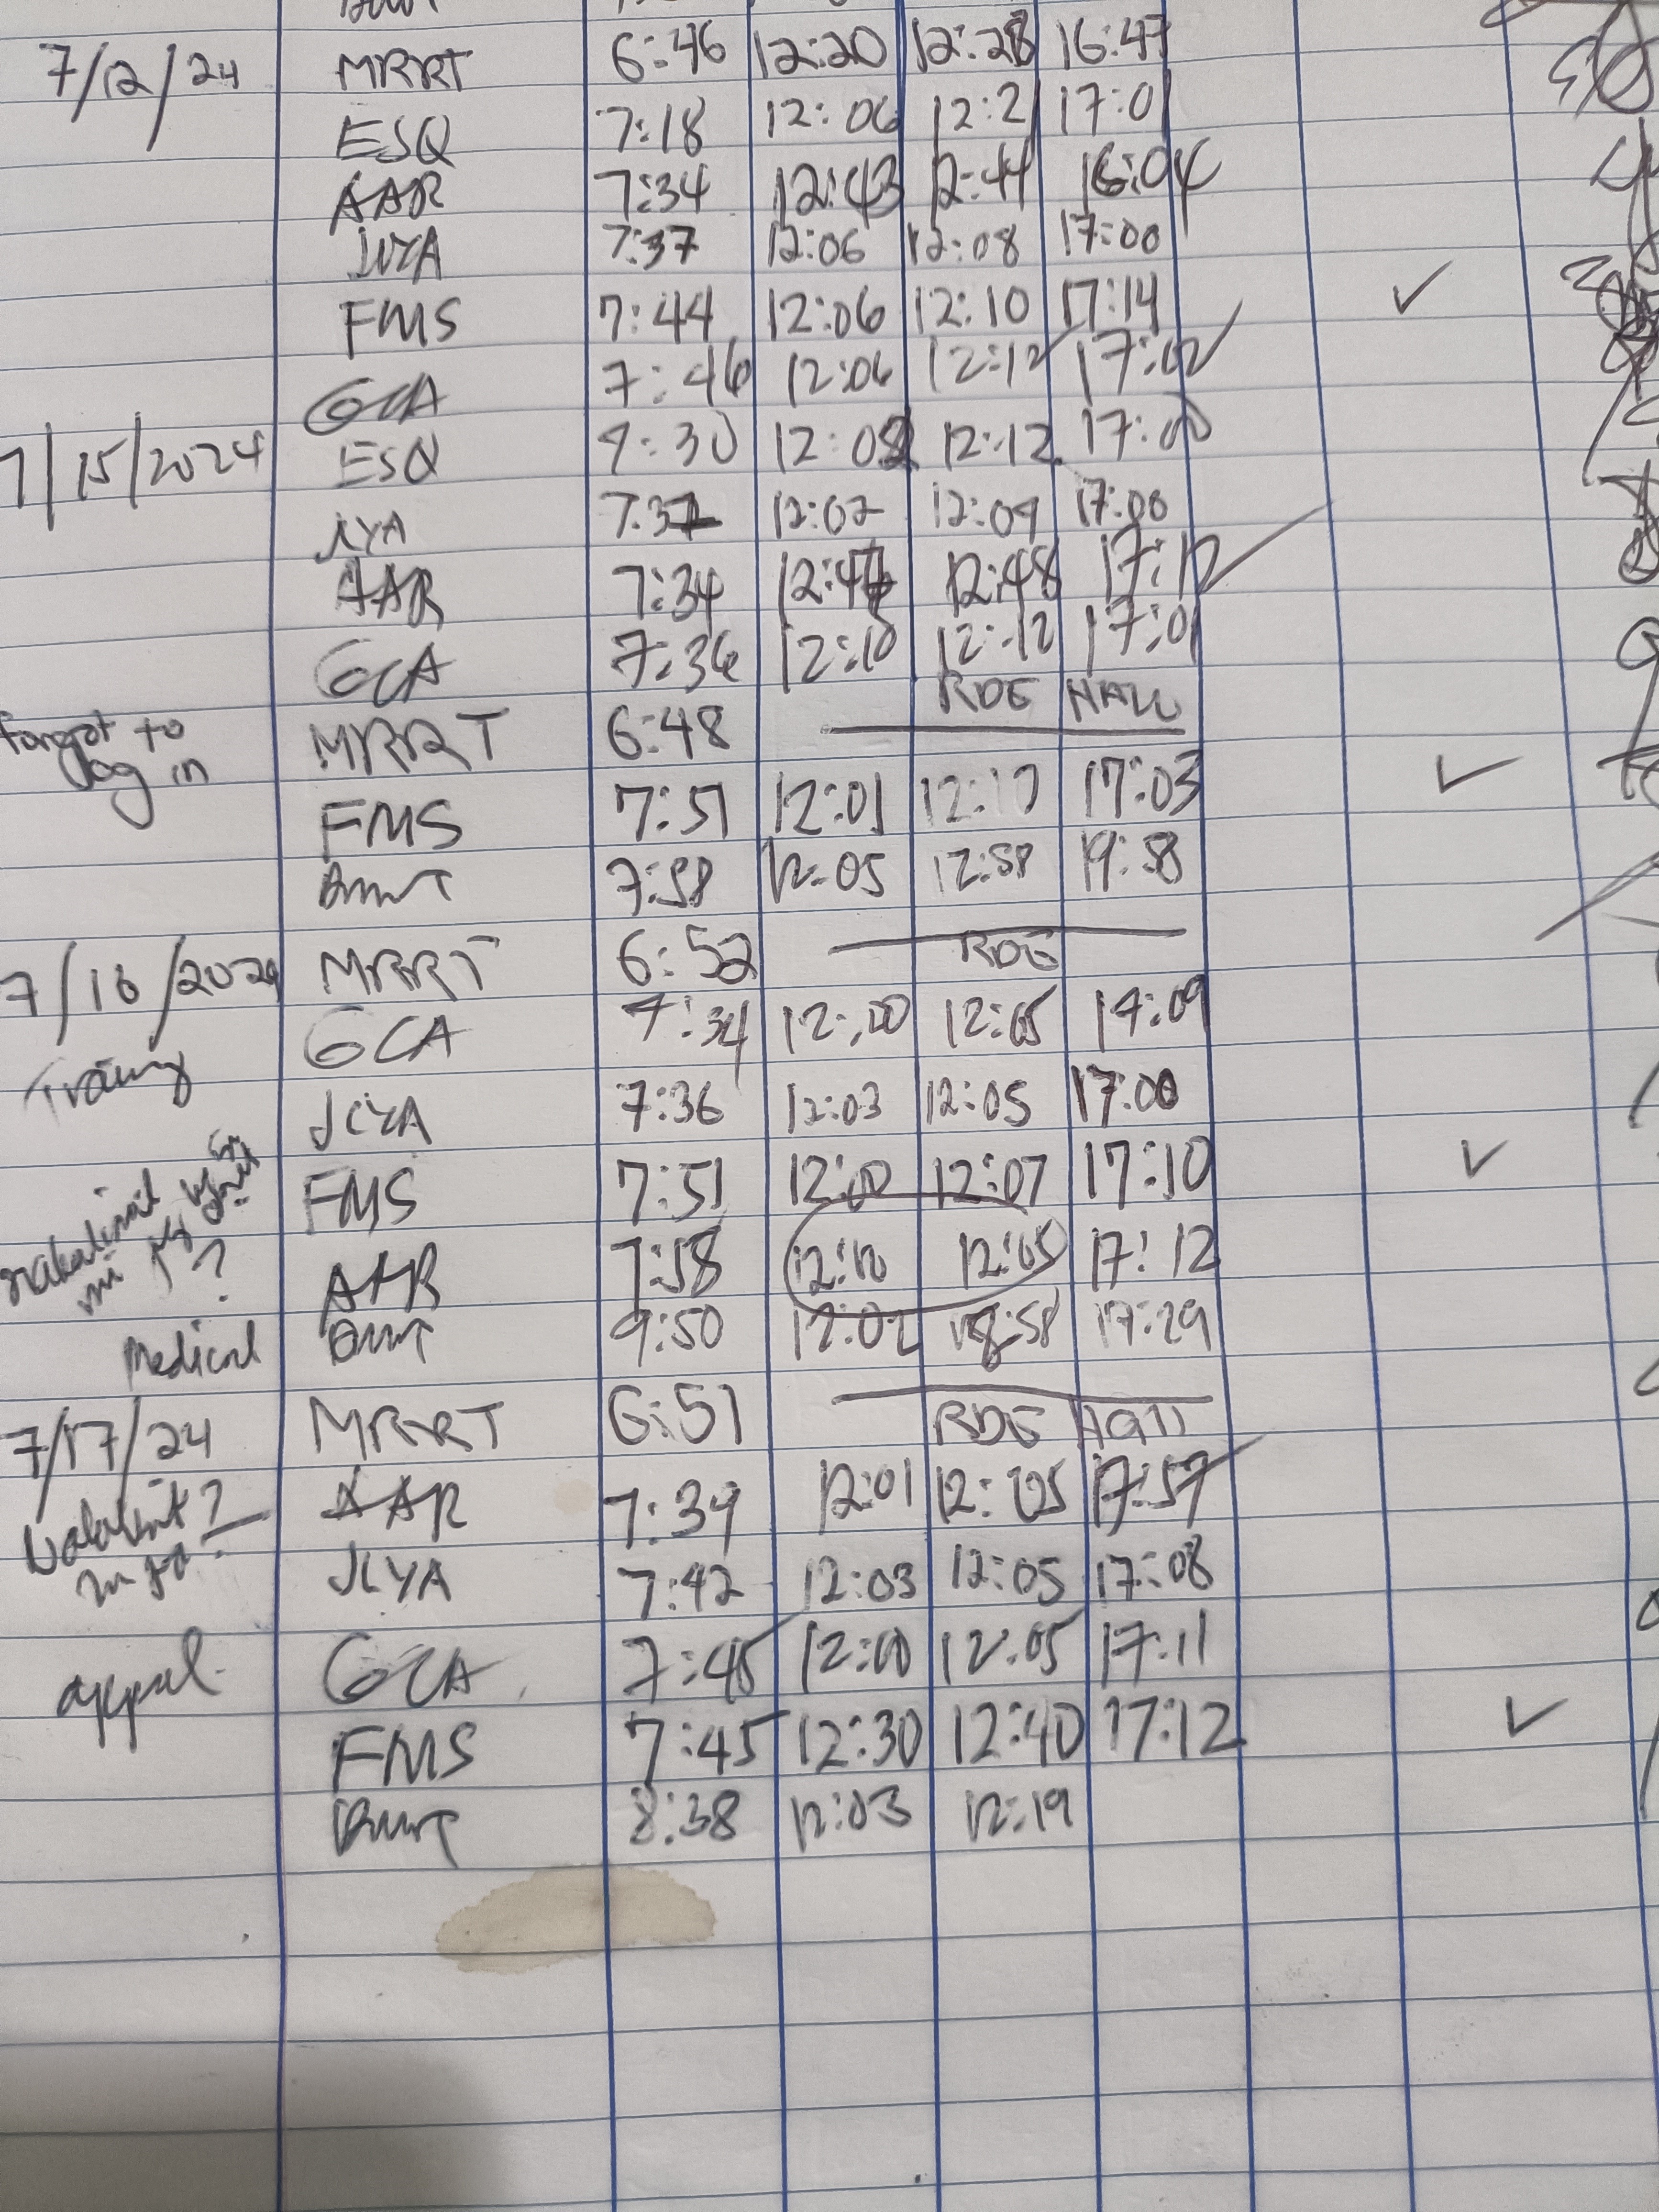 7/12/24 MRRT 6:46 12:20 12:28 16:47
ESQ 7:18 12:06 12:21 17:01
AAR 7:34 12:43 12:44 16:04
JLYA 7:37 12:06 12:08 17:00
FMS 7:44 12:06 12:10 17:14 ✓
GCA 7:46 12:06 12:12 17:02
7/15/2024 ESQ 7:30 12:08 12:12 17:00
JLYA 7:37 12:02 12:04 17:00
AAR 7:34 12:47 12:48 17:12
GCA 7:36 12:10 12:12 17:01
RDE
Forgot to log in MRRT 6:48
FMS 7:51 12:01 12:10 17:03 ✓
7:58 12:05 12:58 19:58
7/16/2024 MRRT 6:52 RDE
GCA 7:34 12:00 12:05 17:09
JLYA 7:36 12:03 12:05 17:00
FMS 7:51 12:00 12:07 17:10 ✓
AAR 7:58 12:10 12:05 17:12
Medical 9:50 12:02 12:58 17:29
7/17/24 MRRT 6:51 RDE
AAR 7:39 12:01 12:05 17:57
JLYA 7:42 12:03 12:05 17:08
GCA 7:45 12:00 12:05 17:11
FMS 7:45 12:30 12:40 17:12 ✓
8:38 12:03 12:19